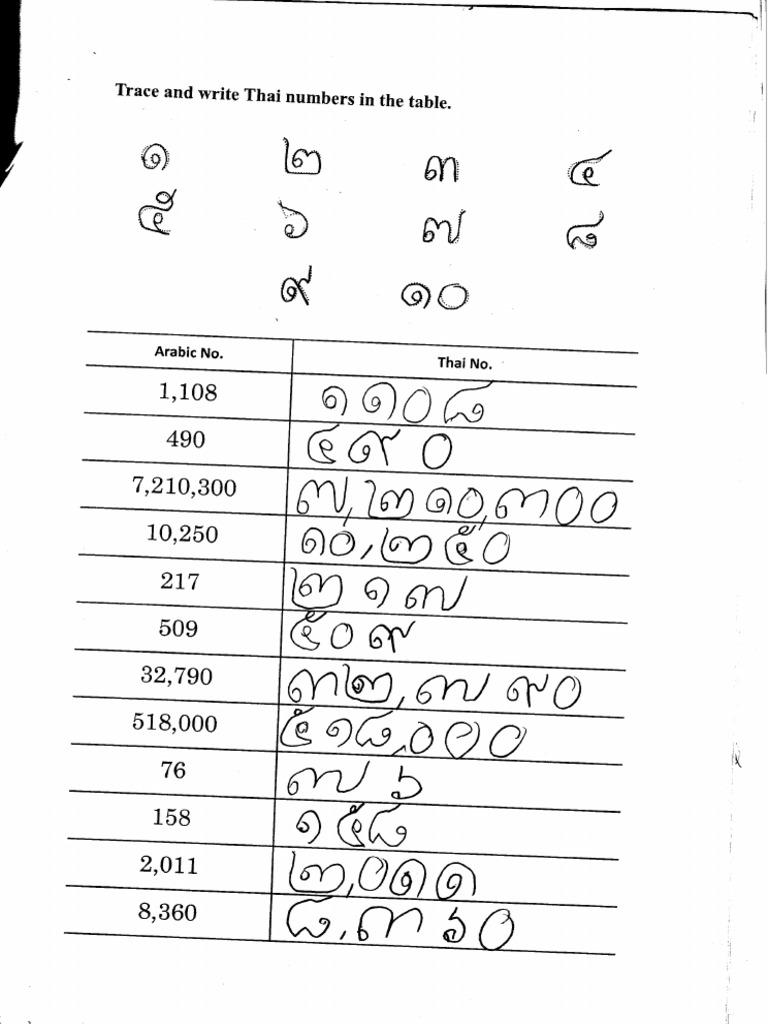 Trace and write Thai numbers in the table.
๑ ๒ ๓ ๔
๕ ๖ ๗ ๘
๙ ๑๐
Arabic No. Thai No.
1,108 ๑๑๐๘
490 ๔๙๐
7,210,300 ๗,๒๑๐,๓๐๐
10,250 ๑๐,๒๕๐
217 ๒๑๗
509 ๕๐๙
32,790 ๓๒,๗๙๐
518,000 ๕๑๘,๐๐๐
76 ๗๖
158 ๑๕๘
2,011 ๒,๐๑๑
8,360 ๘,๓๖๐